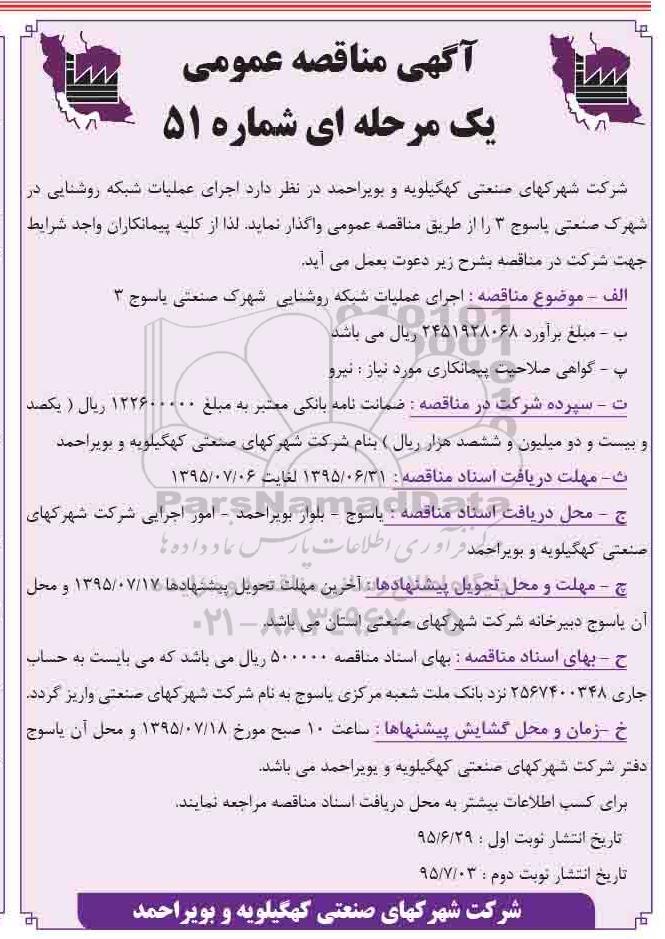 آگهی مناقصه عمومی
یک مرحله ای شماره ۵۱
شرکت شهرکهای صنعتی کهگیلویه و بویراحمد در نظر دارد اجرای عملیات شبکه روشنایی در
شهرک صنعتی یاسوج ۳ را از طریق مناقصه عمومی واگذار نماید. لذا از کلیه پیمانکاران واجد شرایط
جهت شرکت در مناقصه بشرح زیر دعوت بعمل می آید.
الف - موضوع مناقصه : اجرای عملیات شبکه روشنایی شهرک صنعتی یاسوج ۳
ب - مبلغ برآورد ۲۴۵۱۹۲۸۰۶۸ ریال می باشد
پ - گواهی صلاحیت پیمانکاری مورد نیاز : نیرو
ت - سپرده شرکت در مناقصه : ضمانت نامه بانکی معتبر به مبلغ ۱۲۲۶۰۰۰۰۰ ریال ( یکصد
و بیست و دو میلیون و ششصد هزار ریال ) بنام شرکت شهرکهای صنعتی کهگیلویه و بویراحمد
ث- مهلت دریافت اسناد مناقصه : ۱۳۹۵/۰۶/۳۱ لغایت ۱۳۹۵/۰۷/۰۶
ج - محل دریافت اسناد مناقصه : یاسوج - بلوار بویراحمد - امور اجرایی شرکت شهرکهای
صنعتی کهگیلویه و بویراحمد
چ - مهلت و محل تحویل پیشنهادها : آخرین مهلت تحویل پیشنهادها ۱۳۹۵/۰۷/۱۷ و محل
آن یاسوج دبیرخانه شرکت شهرکهای صنعتی استان می باشد.
ح - بهای اسناد مناقصه : بهای اسناد مناقصه ۵۰۰۰۰۰ ریال می باشد که می بایست به حساب
جاری ۲۵۶۷۴۰۰۳۴۸ نزد بانک ملت شعبه مرکزی یاسوج به نام شرکت شهرکهای صنعتی واریز گردد.
خ -زمان و محل گشایش پیشنهاها : ساعت ۱۰ صبح مورخ ۱۳۹۵/۰۷/۱۸ و محل آن یاسوج
دفتر شرکت شهرکهای صنعتی کهگیلویه و بویراحمد می باشد.
برای کسب اطلاعات بیشتر به محل دریافت اسناد مناقصه مراجعه نمایند.
تاریخ انتشار نوبت اول : ۹۵/۶/۲۹
تاریخ انتشار نوبت دوم : ۹۵/۷/۰۳
شرکت شهرکهای صنعتی کهگیلویه و بویراحمد
ParsNamadData
۰۲۱-۸۸۳۴۹۶۷۰-۵